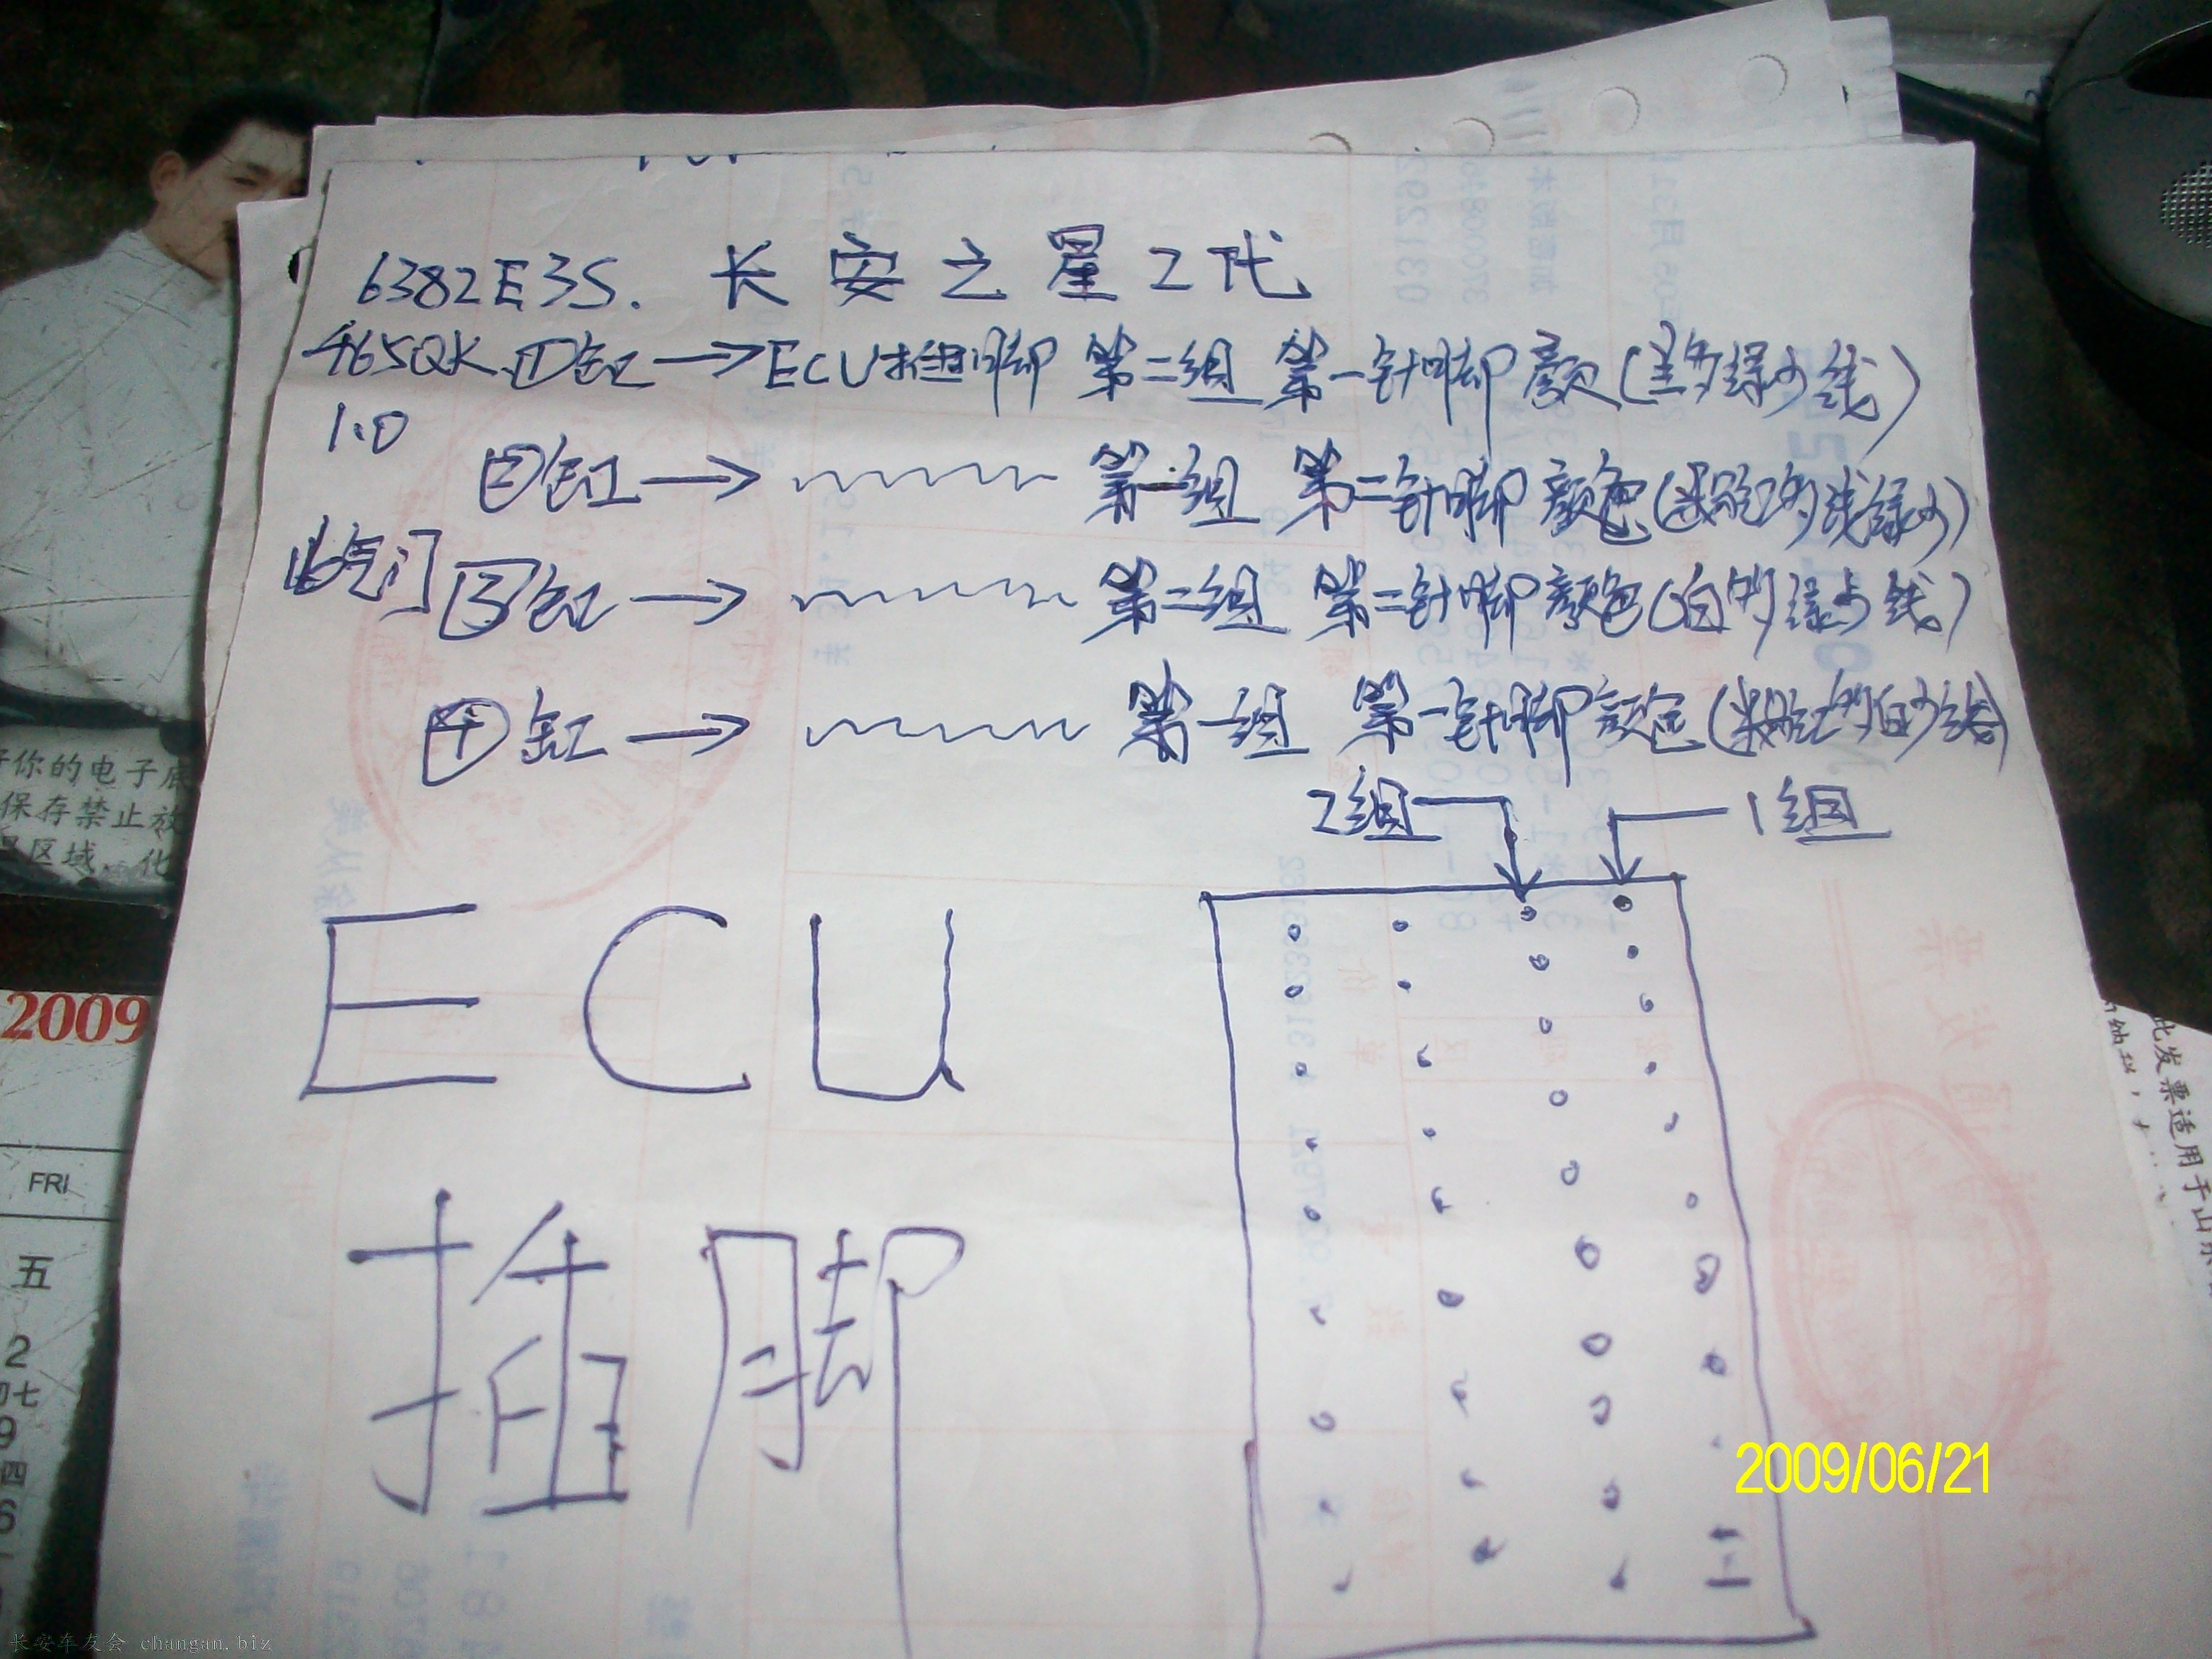 6382E3S. 长安之星2代
465QK ①缸→ECU插脚 第二组 第一针脚 颜(多绿少线)
1.0
②缸→ 第一组 第二针脚 颜色(粉红多线绿少)
16气门 ③缸→ 第二组 第二针脚 颜色(白多绿少线)
④缸→ 第一组 第一针脚 颜色(粉红多白少线)
2组 1组
ECU
插脚
2009/06/21
2009
FRI
五
2
初七
9
四
6
你的电子底
保存禁止放
区域、化
此发票适用于山东
长安车友会 changan.biz